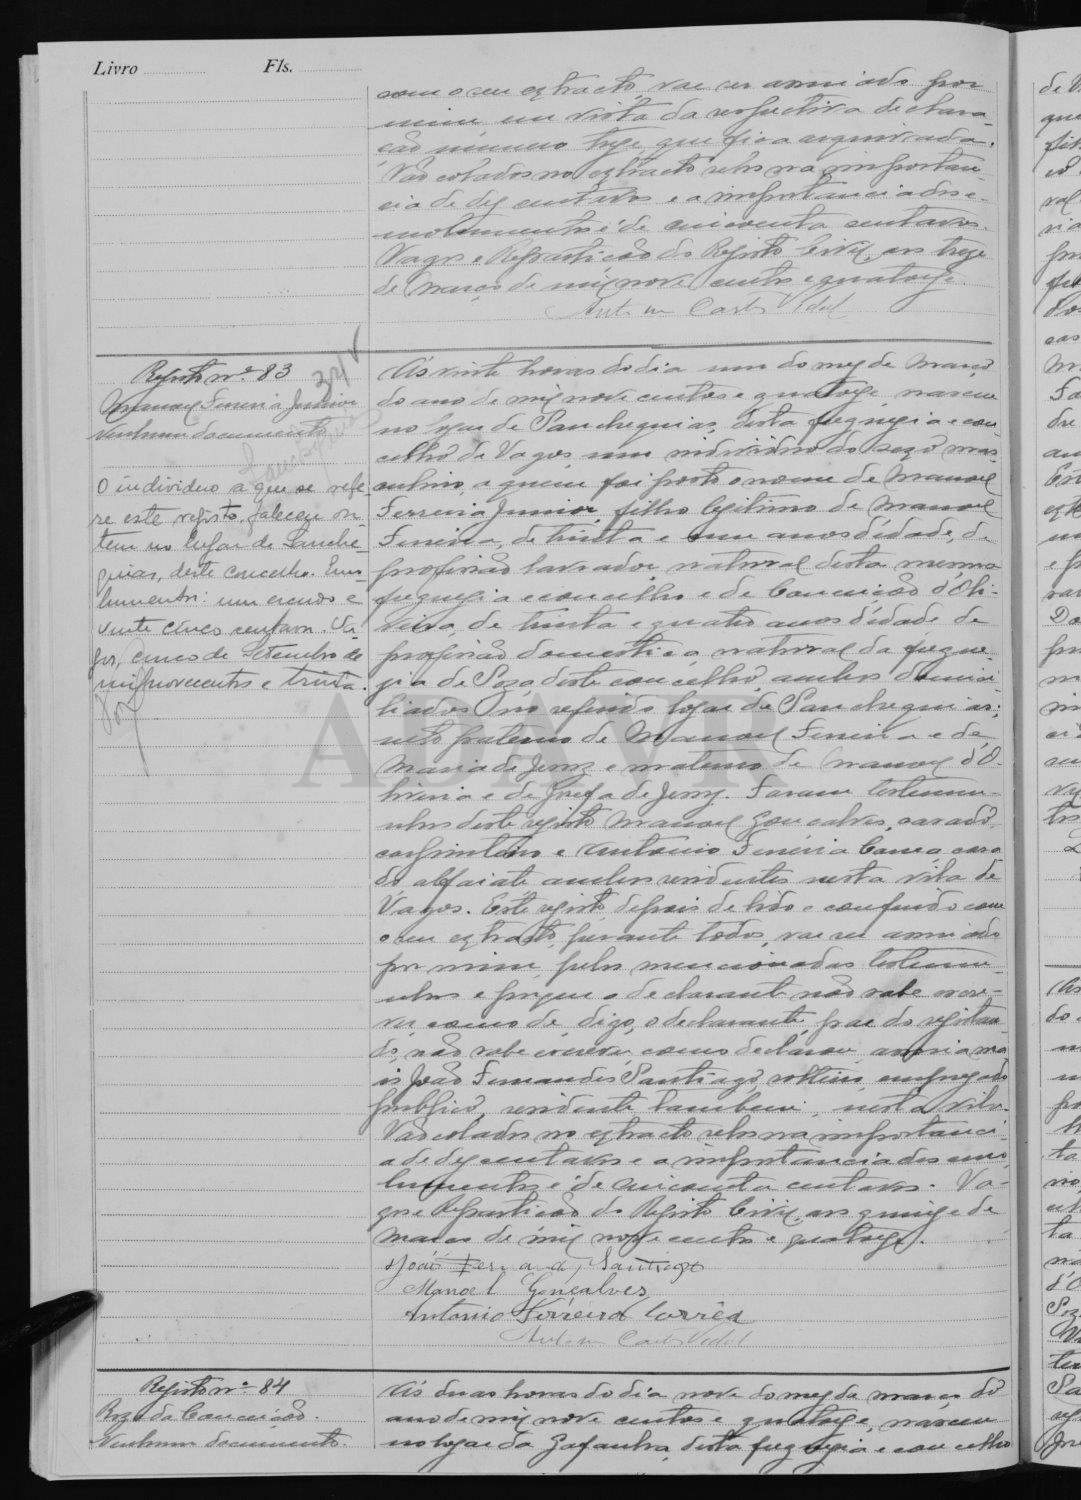 Livro Fls.
com o seu extracto, vae ser assinado por
mim em vista da respectiva declara-
ção número treze, que fica arquivada.
Vão colados no extracto selos na importan-
cia de dez centavos e a importancia dos e-
molumentos é de cincoenta centavos.
Vagos e Repartição do Registo Civil, aos treze
de março de mil nove centos e quatorze.
Antonio Carlos Vidal
Registo nº 83
341
Manoel Ferreira Junior
Nenhum documento
Sanchequias
O individuo a que se refe-
re este registo, faleceu on-
tem no lugar de Sanche-
quias, deste concelho. Emo-
lumentos: um escudo e
vinte cinco centavos. Va-
gos, cinco de Setembro de
mil novecentos e trinta.
Ás vinte horas do dia um do mez de Março
do ano de mil nove centos e quatorze, nasceu
no logar de Sanchequias, desta freguezia e con-
celho de Vagos um individuo do sexo mas-
culino, a quem foi posto o nome de Manoel
Ferreira Junior, filho legitimo de Manoel
Ferreira, de trinta e um anos d'idade, de
profissão lavrador, natural desta mesma
freguezia e concelho e de Conceição d'Oli-
veira, de trinta e quatro anos d'idade de
profissão domestica, natural da fregue-
zia de Soza deste concelho, ambos domici-
liados no referido logar de Sanchequias;
neto paterno de Manoel Ferreira e de
Maria de Jesus, e materno de Manoel d'O-
liveira e de Josefa de Jesus. Foram testemu-
nhas deste registo Manoel Gonçalves, casado,
carpinteiro e Antonio Ferreira Corrêa, casa-
do, alfaiate ambos residentes nesta vila de
Vagos. Este registo, depois de lido e conferido com
o seu extracto, perante todos, vae ser assinado
por mim, pelas mencionadas testemu-
nhas e porque o declarante não sabe escre-
ver, como de, digo, o declarante, pae do registan-
do, não sabe escrever, como declarou, assina ma-
is João Fernandes Santiago, solteiro, empregado
publico, residente tambem, nesta vila.
Vão colados no extracto selos na importanci-
a de dez centavos e a importancia dos emo-
lumentos é de cincoenta centavos. Va-
gos e Repartição do Registo Civil, aos quinze de
março de mil nove centos e quatorze.
João Fernandes Santiago
Manoel Gonçalves
Antonio Ferreira Corrêa
Antonio Carlos Vidal
ADAVR
Registo nº 84
Roza da Conceição.
Nenhum documento.
Ás duas horas do dia nove do mez de março do
ano de mil nove centos e quatorze, nasceu
no logar da Gafanha, desta freguezia e concelho